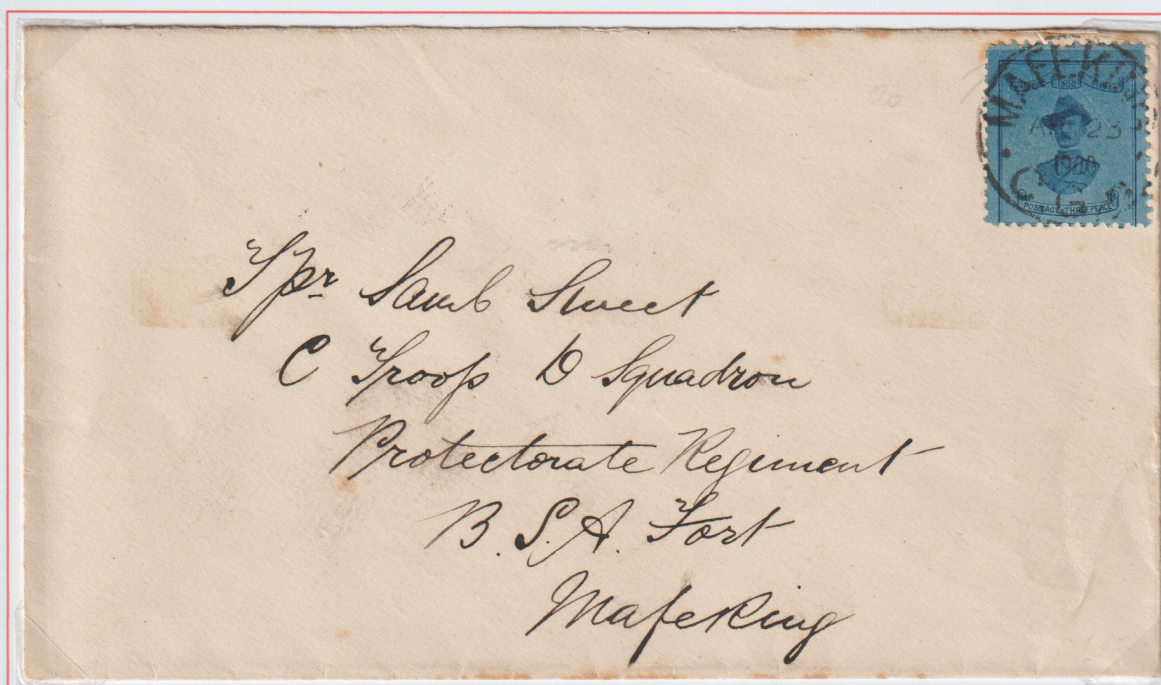 MAFEKING
1900
23
1900
C.G.H
POSTAGE THREEPENCE
Tpr Saml Sweet
C Troop D Squadron
Protectorate Regiment
B. S. A. Fort
Mafeking